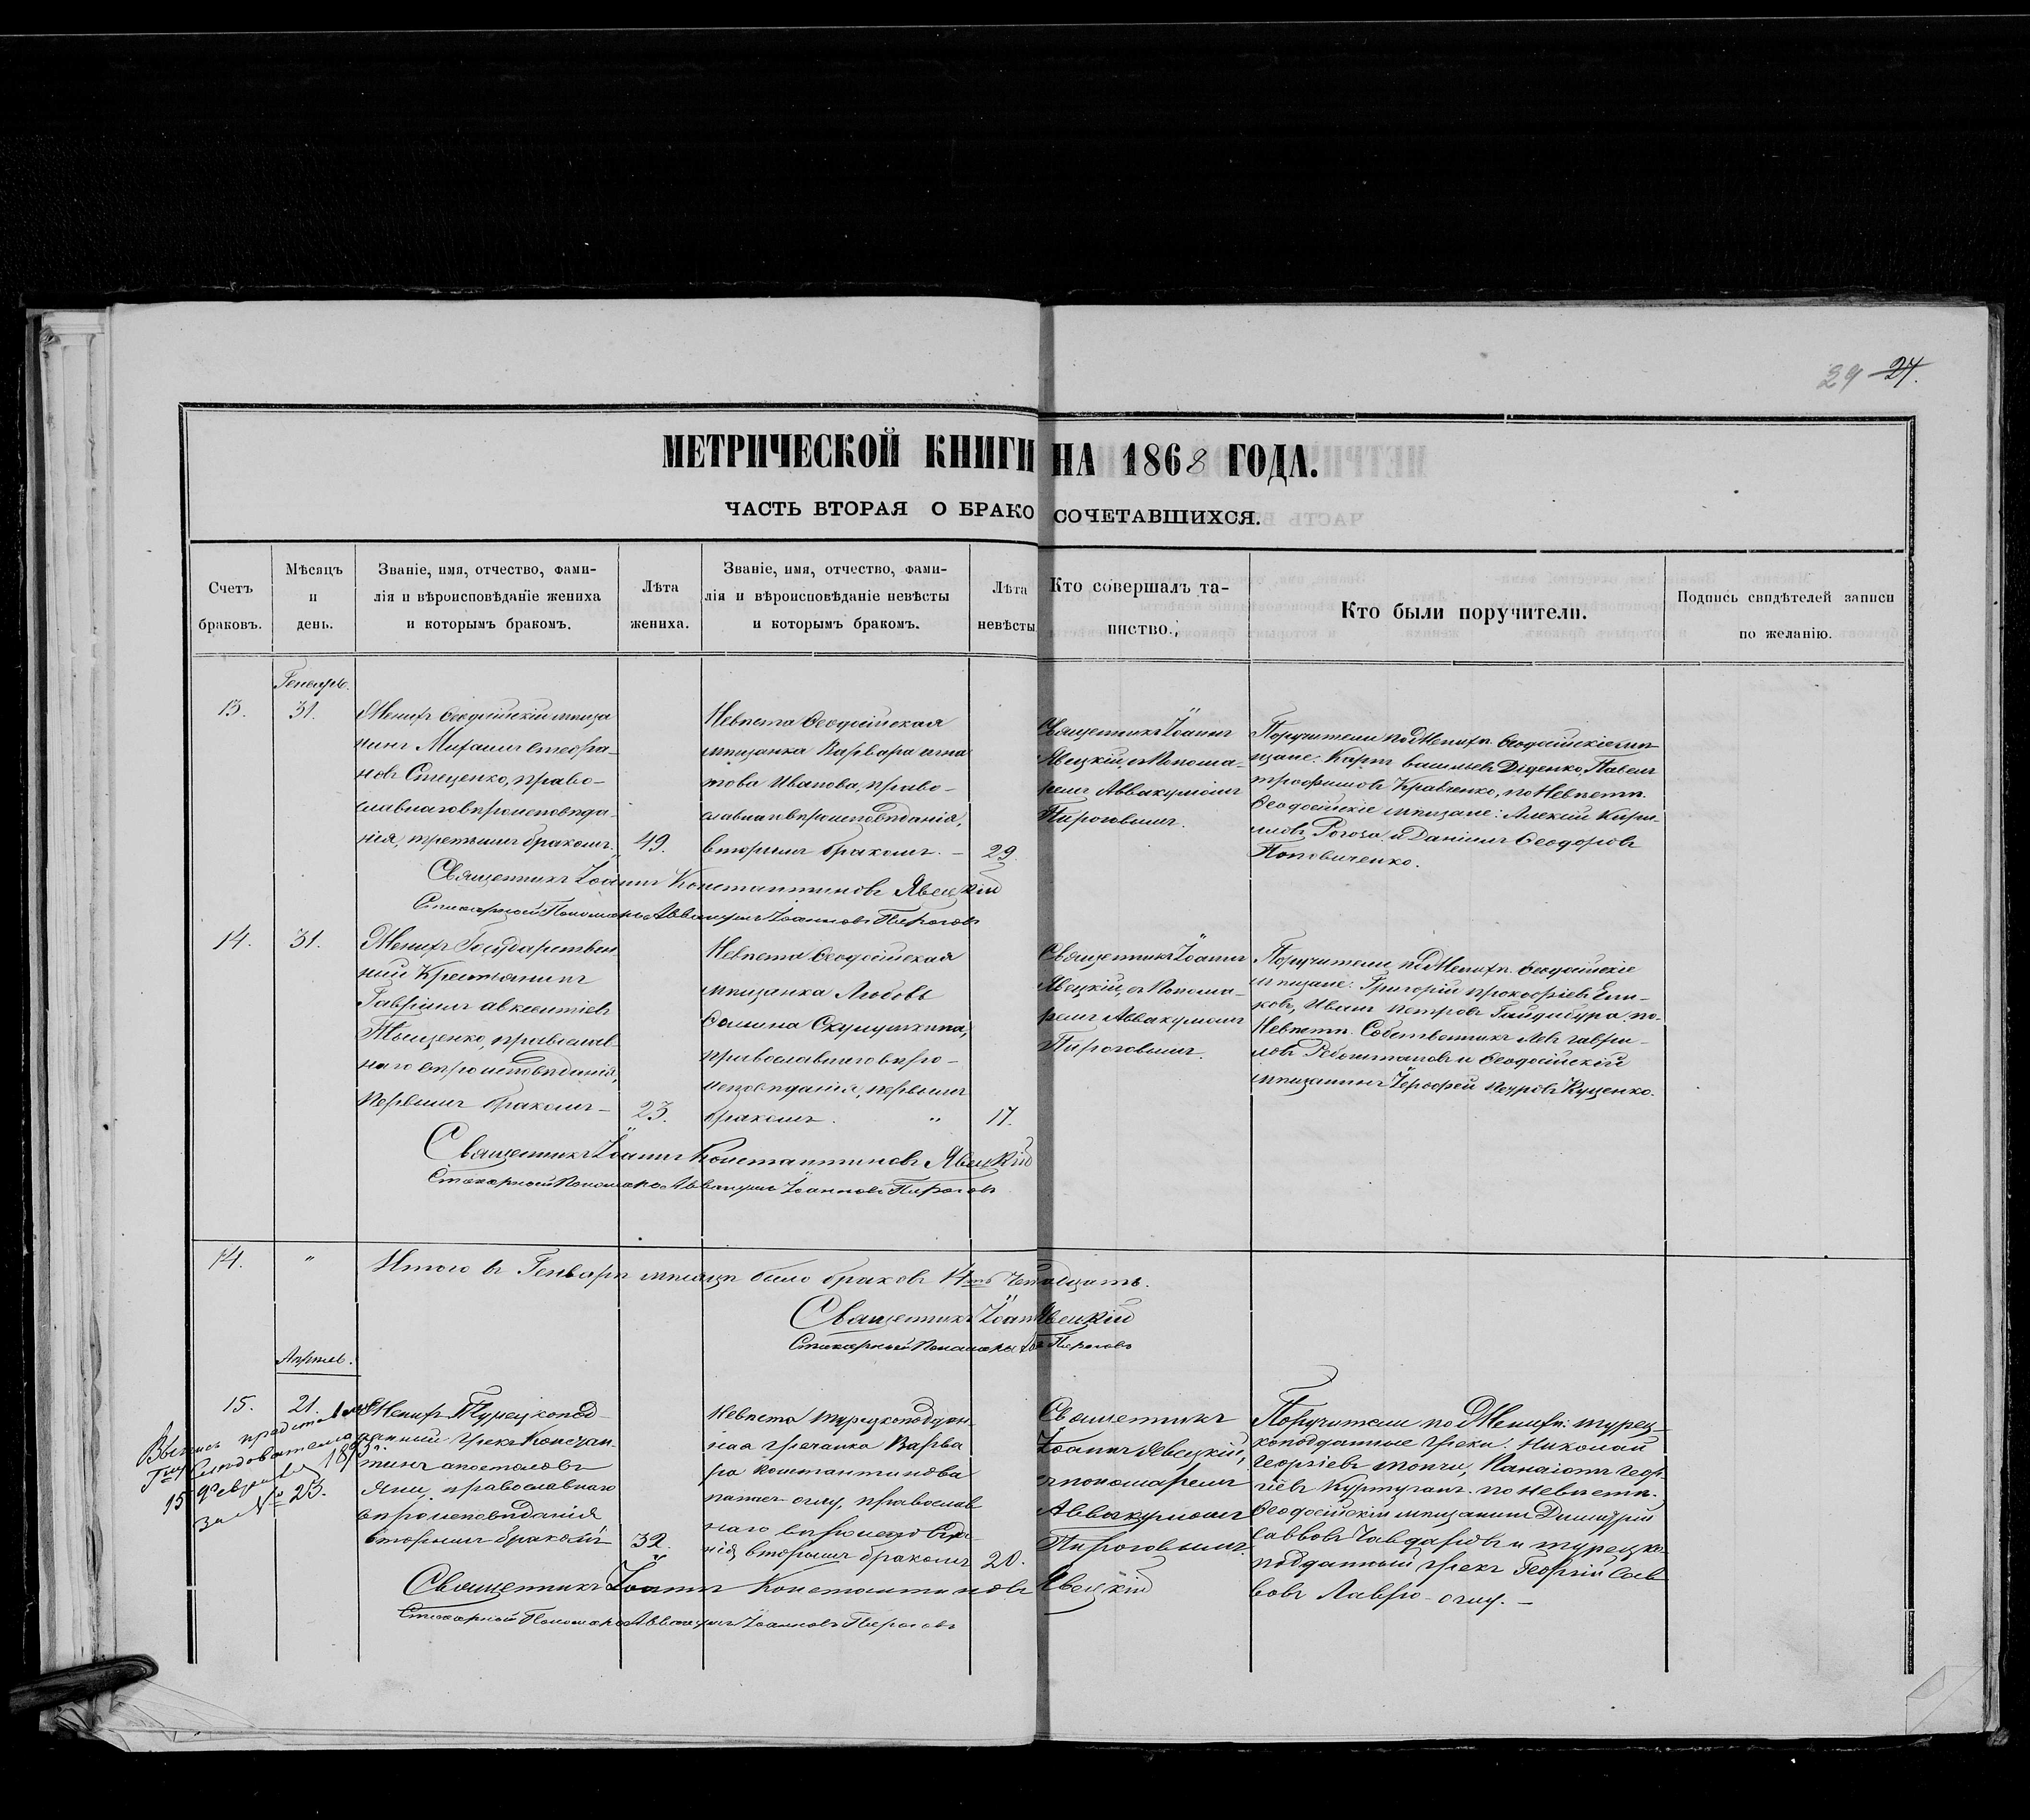 29 24.
МЕТРИЧЕСКОЙ КНИГИ НА 1868 ГОДА.
ЧАСТЬ ВТОРАЯ О БРАКОСОЧЕТАВШИХСЯ.
Счетъ браковъ.
Мѣсяцъ и день.
Званіе, имя, отчество, фами-
лія и вѣроисповѣданіе жениха
и которымъ бракомъ.
Лѣта жениха.
Званіе, имя, отчество, фами-
лія и вѣроисповѣданіе невѣсты
и которымъ бракомъ.
Лѣта невѣсты
Кто совершалъ та-
инство.
Кто были поручители.
Подпись свидѣтелей записи
по желанію.
Генварь.
13.
31.
Женихъ Ѳеодосійскій мѣща
нинъ Михаилъ Стефа-
новъ Стеценко, право-
славнаго вѣроисповѣда-
нія, третьимъ бракомъ.
49.
Невѣста Ѳеодосійская
мѣщанка Варвара
Иванова, право-
славнаго вѣроисповѣданія,
вторымъ бракомъ. –
29.
Священникъ Іоаннъ
Явецкій, съ Понома-
ремъ Аввакумомъ
Пироговымъ.
Поручители по Женихѣ: Ѳеодосійскіе мѣ-
щане: Карпъ Васильевъ Діденко, Павелъ
Трофимовъ Кравченко, по Невѣстѣ
Ѳеодосійскіе мѣщане: Алексій Кири-
ловъ Рогоза и Даніилъ Ѳеодоровъ
Поповиченко.
Священникъ Іоаннъ Константиновъ Явецкій
Стихарный Пономарь Аввакумъ Іоанновъ Пироговъ
14.
31.
Женихъ Государствен-
ный Крестьянинъ
Гавріилъ Авксентіевъ
Тыщенко, православ-
наго вѣроисповѣданія,
первымъ бракомъ –
23.
Невѣста Ѳеодосійская
мѣщанка Любовь
Ѳомина
православнаго вѣро-
исповѣданія, первымъ
бракомъ. "
17.
Священникъ Іоаннъ
Явецкій, съ Понома-
ремъ Аввакумомъ
Пироговымъ.
Поручители по Женихѣ: Ѳеодосійскіе
мѣщане: Григорій Прокофіевъ
Иванъ Петровъ Гайдабура, по
Невѣстѣ: Собственникъ Левъ Гаври-
ловъ и Ѳеодосійскій
мѣщанинъ Іерофей Петровъ Куценко.
Священникъ Іоаннъ Константиновъ Явецкій
Стихарный Пономарь Аввакумъ Іоанновъ Пироговъ
14.
"
Итого въ Генварѣ мѣсяцѣ было браковъ 14ть
Священникъ Іоаннъ Явецкій
Стихарный Пономарь Пироговъ
Апрѣль.
15.
21.
Выпись
Слѣдователю
15 Февраля 18
за № 23.
Женихъ Турецкопод-
данный Грекъ Констан-
тинъ Апостоловъ
православнаго
вѣроисповѣданія
вторымъ бракомъ
32.
Невѣста турецкоподдан-
ная гречанка Варва
ра Константинова
оглу, православ
наго вѣроисповѣда-
нія вторымъ бракомъ
20.
Священникъ
Іоаннъ Явецкій,
съ пономаремъ
Аввакумомъ
Пироговымъ.
Поручители по Женихѣ: турец-
коподданные Греки: Николай
Георгіевъ Панаіотъ Геор-
гіевъ по Невѣстѣ:
Ѳеодосійскій мѣщанинъ Димитрій
Саввовъ Чавдаровъ и турецко-
подданный Грекъ Георгій Сав-
вовъ Лавро-оглу. –
Священникъ Іоаннъ Константиновъ Явецкій
Стихарный Пономарь Аввакумъ Іоанновъ Пироговъ